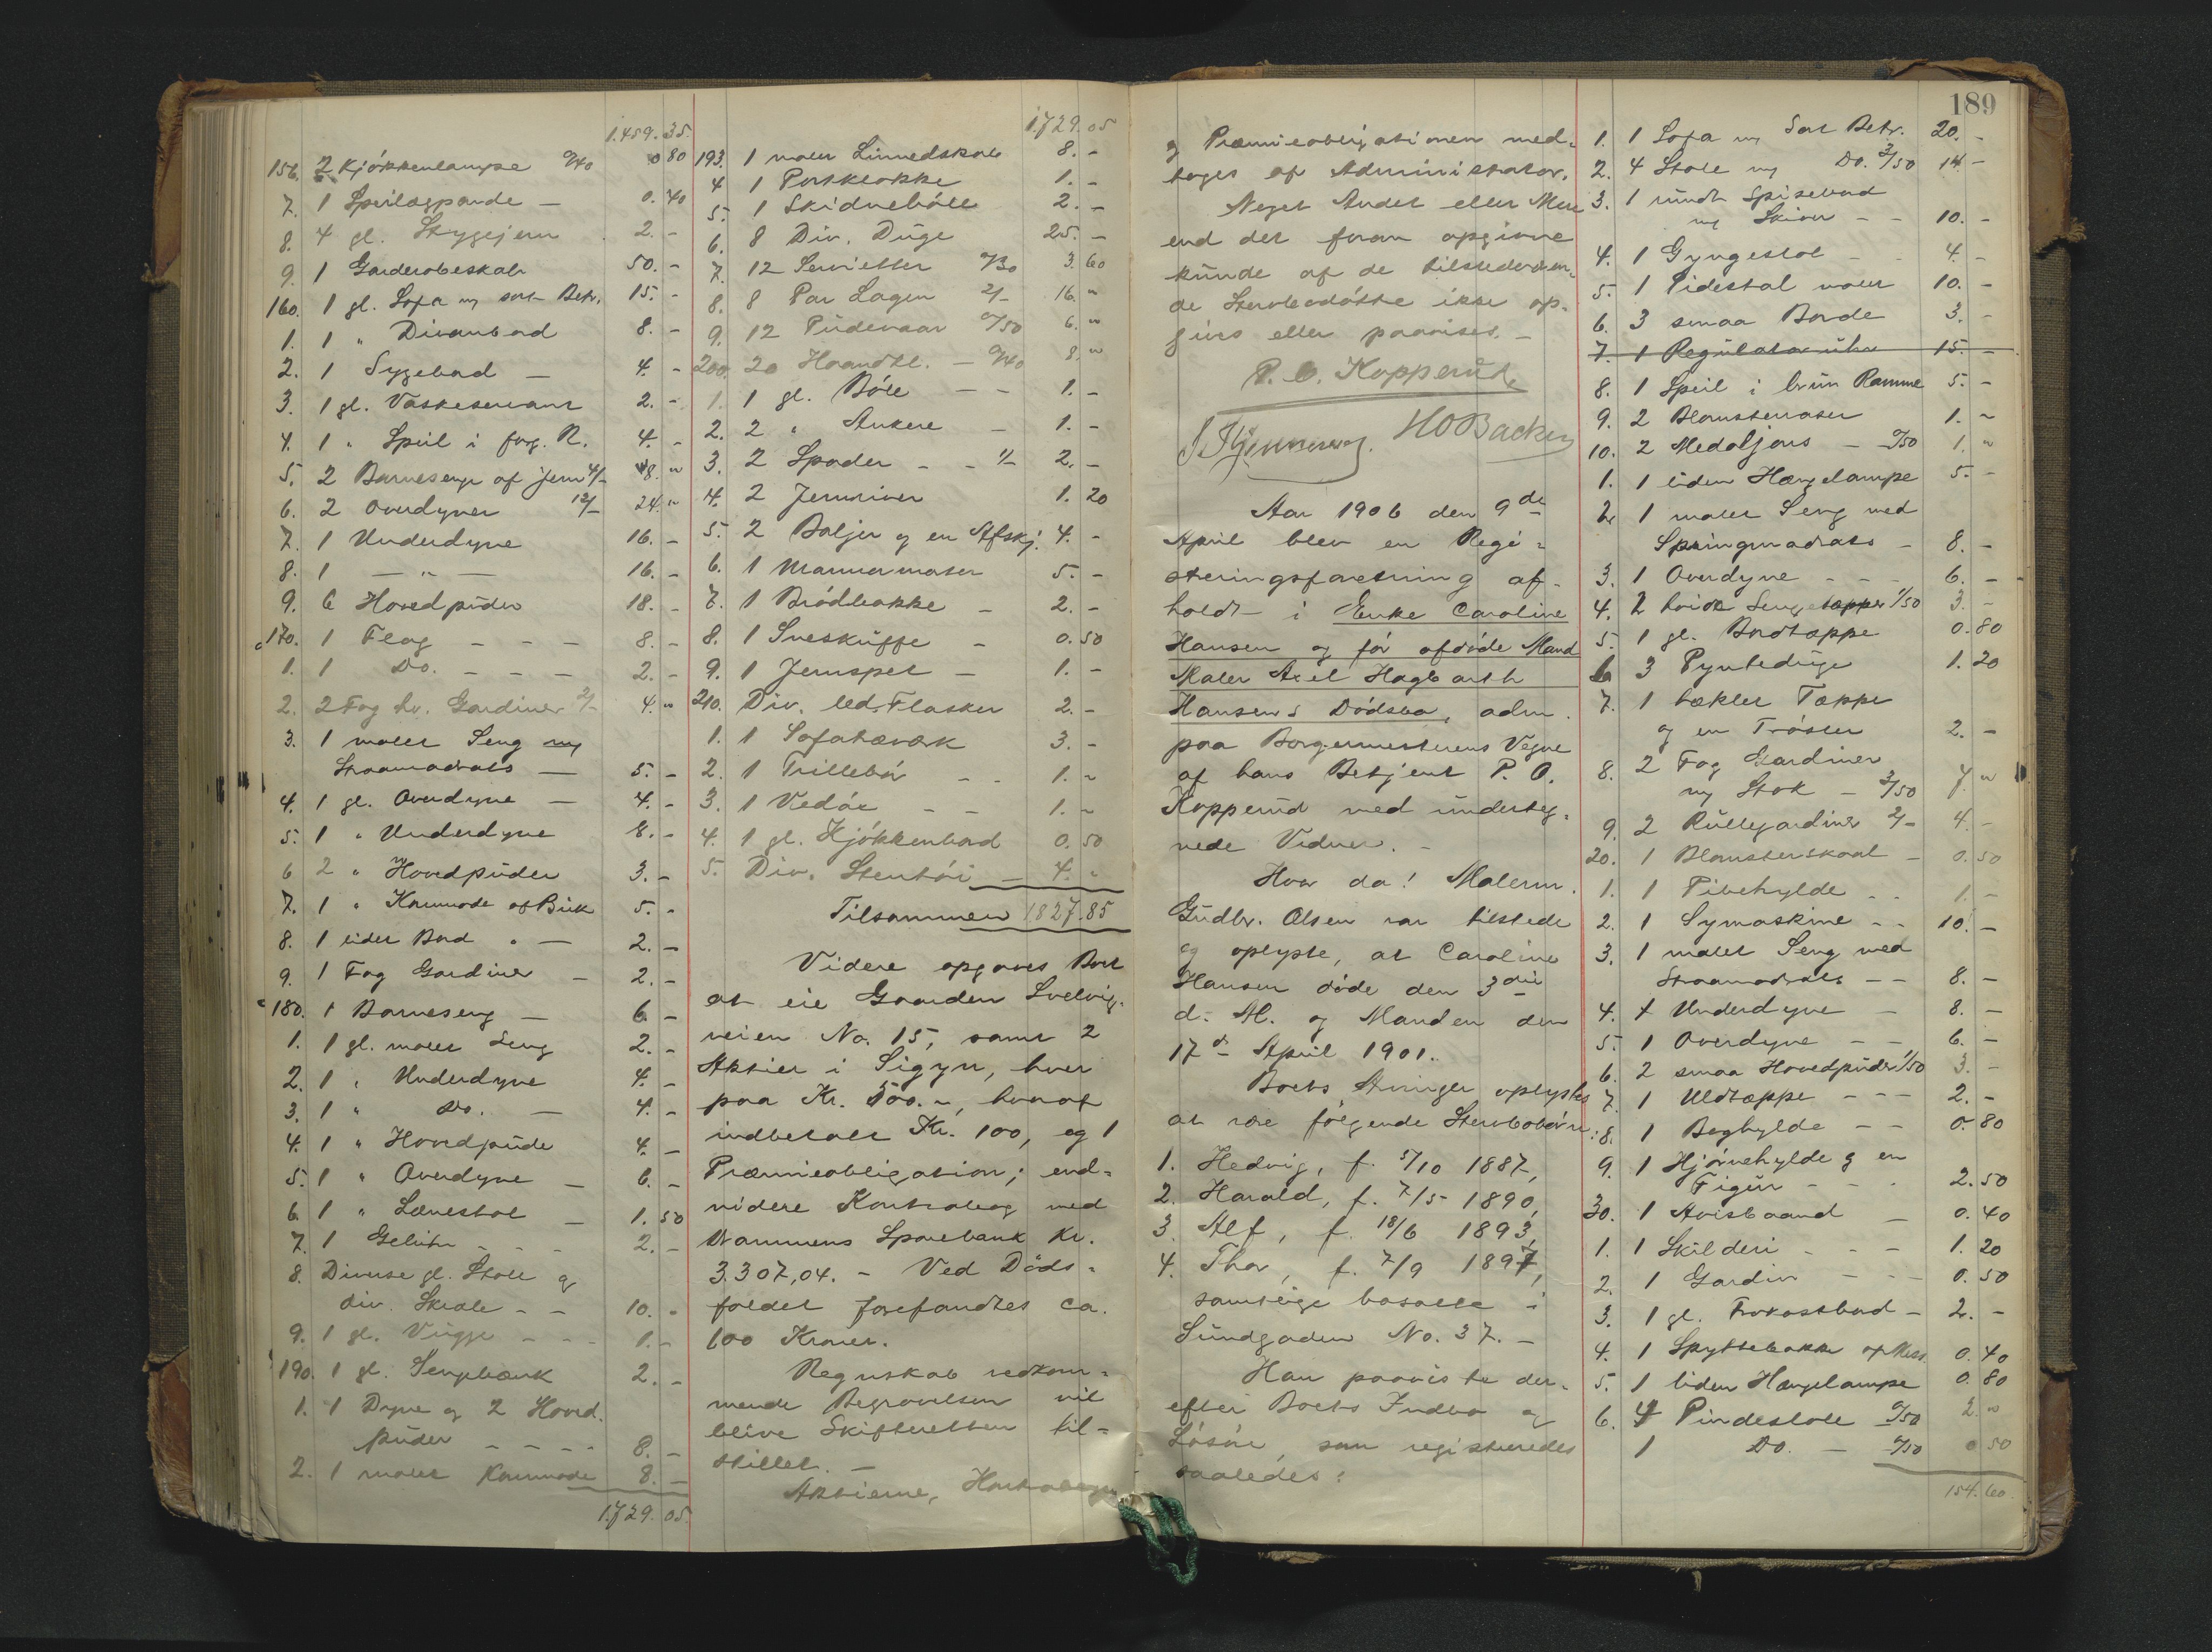 1.459.35.
156. 2 Kjökkenlampe 0/40 0 80
7. 1 Speilægpande — 0.40
8. 4 gl. Strygejern 2.-
9. 1 Garderobeskab 50.-
160. 1 gl. Sofa m/ sort Betr. 15.-
1. 1 " Divanbord 8.-
2. 1 Sygebord — 4.-
3. 1 gl. Vaskeservant 2.-
4. 1 " Speil i forg. R. 4.-
5. 2 Barnesenge af Jern 4/- 8. "
6. 2 Overdyner 12/- 24. "
7. 1 Underdyne 16.-
8. 1 — " — 16.-
9. 6 Hovedpuder 18.-
170. 1 Flag - - - 8.-
1. 1 Do. - - - 2.-
2. 2 Fag hv. Gardiner 2/- 4. "
3. 1 malet Seng m/
Straamadrats — 5.-
4. 1 gl. Overdyne — 4.-
5. 1 " Underdyne 8.-
6 2 " Hovedpuder 3.-
7. 1 " Kommode af Birk 5.-
8. 1 lidet Bord " — 2.-
9. 1 Fag Gardiner — 2.-
180. 1 Barneseng — 6.-
1. 1 gl. malet Seng 2.-
2. 1 " Underdyne 4.-
3. 1 " Do. — 4.-
4. 1 " Hovedpude 4.-
5. 1 " Overdyne — 6.-
6. 1 " Lænestol — 1.50
7. 1 - - - 2.-
8. Diverse gl. Stole og
div. Skrale - - 10.-
9. 1 gl. Vugge - - - 1.-
190. 1 gl. Sengebænk 2.-
1. 1 Dyne og 2 Hoved.
puder - - - - 8.-
2. 1 malet Kommode 8.-
1.729.05.
1.729.05
193. 1 malet Linnedskab 8.-
4 1 Portklokke 1.-
5. 1 Skidnebalje 2.-
6. 8 Div. Duge 25.-
7. 12 Servietter 0/30 3.60
8. 8 Par Lagen 2/- 16. "
9. 12 Pudevaar 0/50 6. "
200. 20 Haandkl. — 0/40 8. "
1. 1 gl. Böle - - 1.-
2. 2 " Ankere - 1.-
3. 2 Spader - - 1/- 2.-
4. 2 Jernriver 1.20
5. 2 Baljer og en Afskj. 4.-
6. 1 Marmormorter 5.-
7. 1 Brödbakke - 2.-
8. 1 Sneskuffe - 0.50
9. 1 Jernspet - 1.-
210. Div. led. Flasker 2.-
1. 1 Sofatæværk 3.-
2. 1 Trillebör - - 1.-
3. 1 Vedöxe - - 1.-
4. 1 gl. Kjökkenbord 0.50
5. Div. Stentöi — 4.-
Tilsammen 1.827.85
Videre opgaves Boet
at eie Gaarden Svelvig-
veien No. 15, samt 2
Aktier i Sigyn, hver
paa Kr. 500.-, hvoraf
indbetalt Kr. 100, og 1
Præmieobligation; end-
videre Kontrabog med
Drammens Sparebank Kr.
3.307,04. - Ved Döds-
faldet forefandtes ca.
100 Kroner.
Regnskab vedkom-
mende Begravelsen vil
blive Skifteretten til-
stillet. —
Aktierne, Kontrabogen
189
og Præmieobligationen med-
toges af Administrator.
Noget Andet eller Mere
end det foran opgivne
kunde af de tilstedeværen-
de Stervbodötre ikke op-
gives eller paavises. -
P. O. Kopperud,
HOBacker
Aar 1906 den 9de
April blev en Regi-
streringsforretning af-
holdt i Enke Caroline
Hansen og för afdöde Mand
Maler Axel Hagbarth
Hansens Dödsbo, adm.
paa Borgermesterens Vegne
af hans Betjent P. O.
Kopperud med underteg-
nede Vidner. -
Hvor da! Malerm.
Gudbr. Olsen var tilstede
og oplyste, at Caroline
Hansen döde den 3die
d. M. og Manden den
17de April 1901.
Boets Arvinger oplystes
at være fölgende Stervbobörn:
1. Hedvig, f. 5/10 1887,
2. Harald, f. 7/5 1890,
3. Alf, f. 18/6 1893,
4. Thor, f. 7/9 1897,
samtlige bosatte i
Sundgaden No. 37. -
Han paaviste der-
efter Boets Indbo og
Lösöre, som registreredes
saaledes:
1. 1 Sofa m/ Sort Betr. 20.-
2. 4 Stole m/ Do. 3/50 14-
3. 1 rundt Spisebord
m/ Skiver - - 10.-
4. 1 Gyngestol - - 4.-
5. 1 Pidestal malet 10.-
6. 3 smaa Borde 3.-
7. 1 Regulatoruhr 15.-
8. 1 Speil i brun Ramme 5.-
9. 2 Blomstervaser 1.-
10. 2 Medaljons — 0/50 1. "
1. 1 liden Hængelampe 5.-
2. 1 malet Seng med
Springmadrats - 8.-
3. 1 Overdyne - - - 6.-
4. 2 hvide Sengetæpper 1/50 3.-
5. 1 gl. Bordtæppe 0.80
6 3 Pynteduge 1.20
7. 1 hæklet Tæppe
og en Tröster 2.-
8. 2 Fag Gardiner
m/ Stok - 3/50 7. "
9. 2 Rullegardiner 2/- 4.-
20. 1 Blomsterskaal - 0.50
1. 1 Pibehylde - - 1.-
2. 1 Symaskine - - 10.-
3. 1 malet Seng med
Straamadrats - - 8.-
4. 1 Underdyne - 8.-
5. 1 Overdyne - - 6.-
6. 2 smaa Hovedpuder 1/50 3.-
7. 1 Uldtæppe - - - 2.-
8. 1 Boghylde - - 0.80
9. 1 Hjörnehylde og en
Figur - - - 2.50
30. 1 Avisbaand - 0.40
1. 1 Skilderi - - - 1.20
2. 1 Gardin - - - 0.50
3. 1 gl. Frokostbord - 2.-
4. 1 Spyttebakke af Mess. 0.40
5. 1 liden Hængelampe 0.80
6. 4 Pindestole 0/50 2. "
1 Do. — 0/50 0 50
154.60.